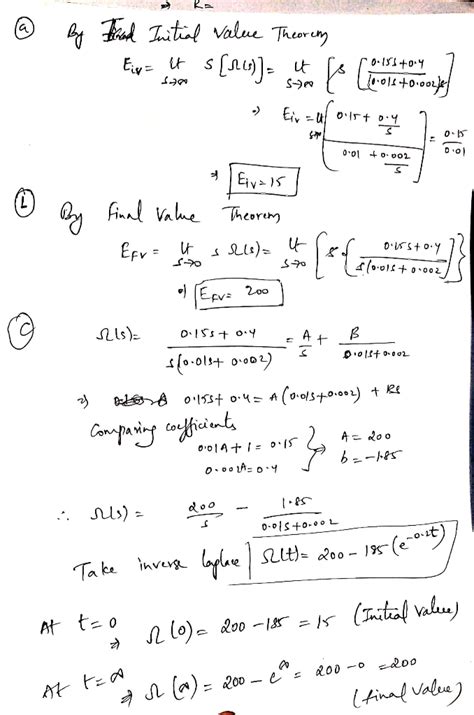 ⇒ R=
(a) By Initial Value Theorem
E_iv = Lt s→∞ s[Ω(s)] = Lt s→∞ [s (0.15s+0.4)/((0.01s+0.002)s)]
⇒ E_iv = Lt s→∞ [(0.15+0.4/s)/(0.01+0.002/s)] = 0.15/0.01
⇒ E_iv=15
By final Value Theorem
E_FV = Lt s→0 s Ω(s) = Lt s→0 {s[(0.15s+0.4)/(s(0.01s+0.002))]}
E_FV= 200
(c) Ω(s)= (0.15s+0.4)/(s(0.01s+0.002)) = A/s + B/(0.01s+0.002)
⇒ 0.15s+0.4 = A(0.01s+0.002) + Bs
Comparing coefficients
0.01A+1=0.15 } A=200
0.002A=0.4 b=-1.85
∴ Ω(s) = 200/s - 1.85/(0.01s+0.002)
Take inverse laplace Ω(t)= 200-185(e^-0.2t)
At t=0
⇒ Ω(0)= 200-185 = 15 (Initial Value)
At t=∞
⇒ Ω(∞)= 200-e^∞ = 200-0 =200
(final value)